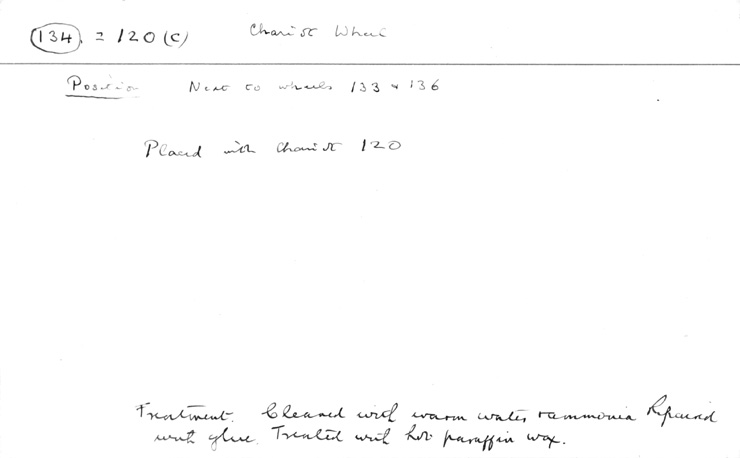 134. = 120 (c) Chariot Wheel
Position Next to wheels 133 & 136
Placed with Chariot 120
Treatment. Cleaned with warm water & ammonia Repaired
with glue. Treated with hot paraffin wax.